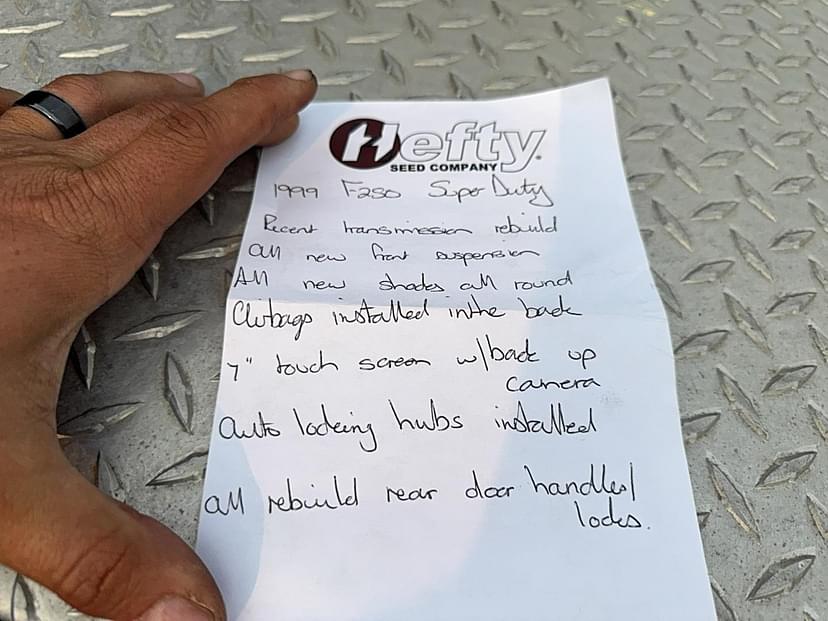 Hefty
SEED COMPANY
1999 F-250 Super Duty
Recent transmission rebuild
All new front suspension
All new shocks all round
Airbags installed in the back
7" touch screen w/back up
camera
auto locking hubs installed
all rebuild rear door handles/
locks.